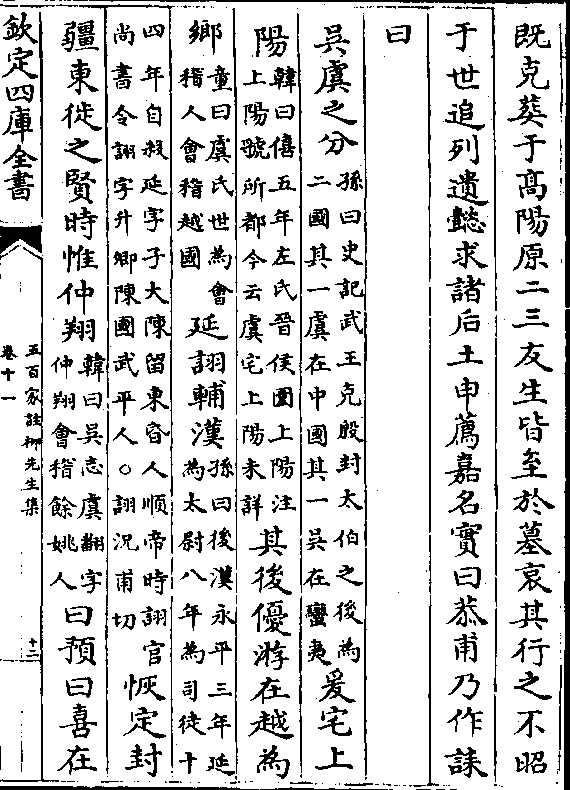 既克葬于高陽原二三友生皆至於墓哀其行之不昭
于世追列遺懿求諸后土申薦嘉名實曰恭甫乃作誄
曰
吳虞之分孫曰史記武王克殷封太伯之後為二國其一虞在中國其一吳在蠻夷爰宅上
陽韓曰僖五年左氏晉侯圍上陽注上陽虢所都今云虞宅上陽未詳其後優游在越為
鄉童曰虞氏世為會稽人會稽越國延詡輔漢孫曰後漢永平三年延為太尉八年為司徒十
四年自殺延字子大陳留東昏人順帝時詡官尚書令詡字升卿陳國武平人○詡況甫切恢定封
疆東徙之賢時惟仲翔韓曰吳志虞翻字仲翔會稽餘姚人曰預曰喜在
欽定四庫全書
五百家註柳先生集
卷十一
十二